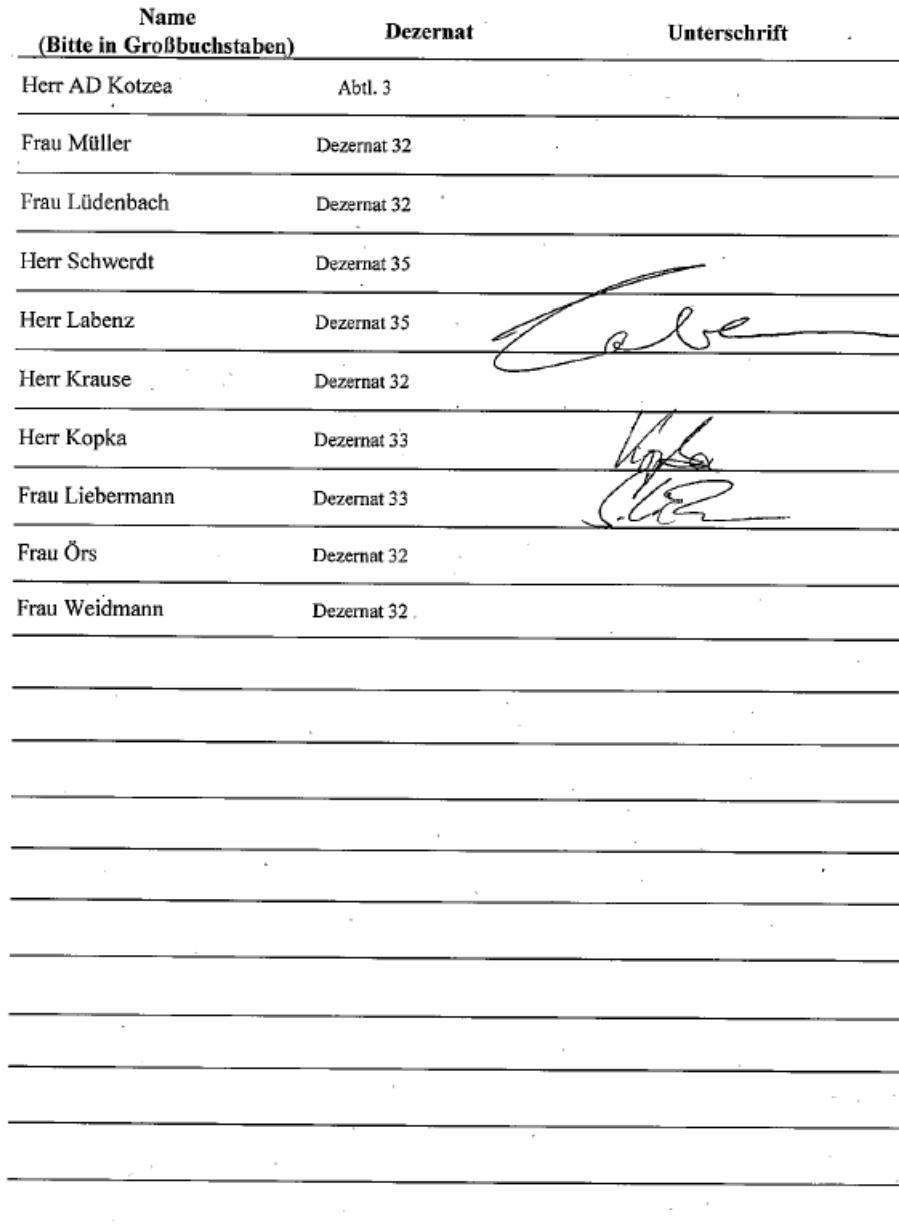 Name
(Bitte in Großbuchstaben) Dezernat Unterschrift
Herr AD Kotzea Abtl. 3
Frau Müller Dezernat 32
Frau Lüdenbach Dezernat 32
Herr Schwerdt Dezernat 35
Herr Labenz Dezernat 35
Herr Krause Dezernat 32
Herr Kopka Dezernat 33 Kopka
Frau Liebermann Dezernat 33
Frau Örs Dezernat 32
Frau Weidmann Dezernat 32